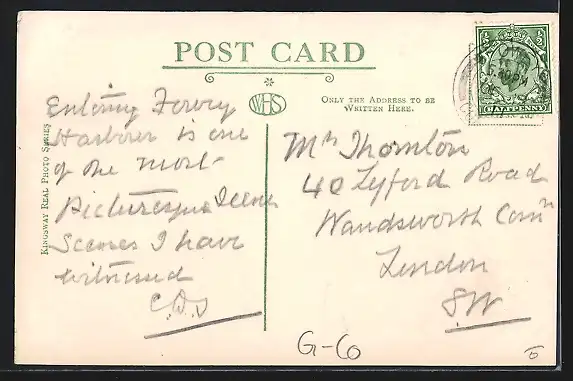 POST CARD
WHS
ONLY THE ADDRESS TO BE
WRITTEN HERE.
KINGSWAY REAL PHOTO SERIES
Entering Fowey
Harbour is one
of the most
Picturesque Scenes
Scenes I have
witnessed
C.D.S
Mrs Thornton
40 Lyford Road
Wandsworth Comn
London
SW
HALFPENNY
G-Co